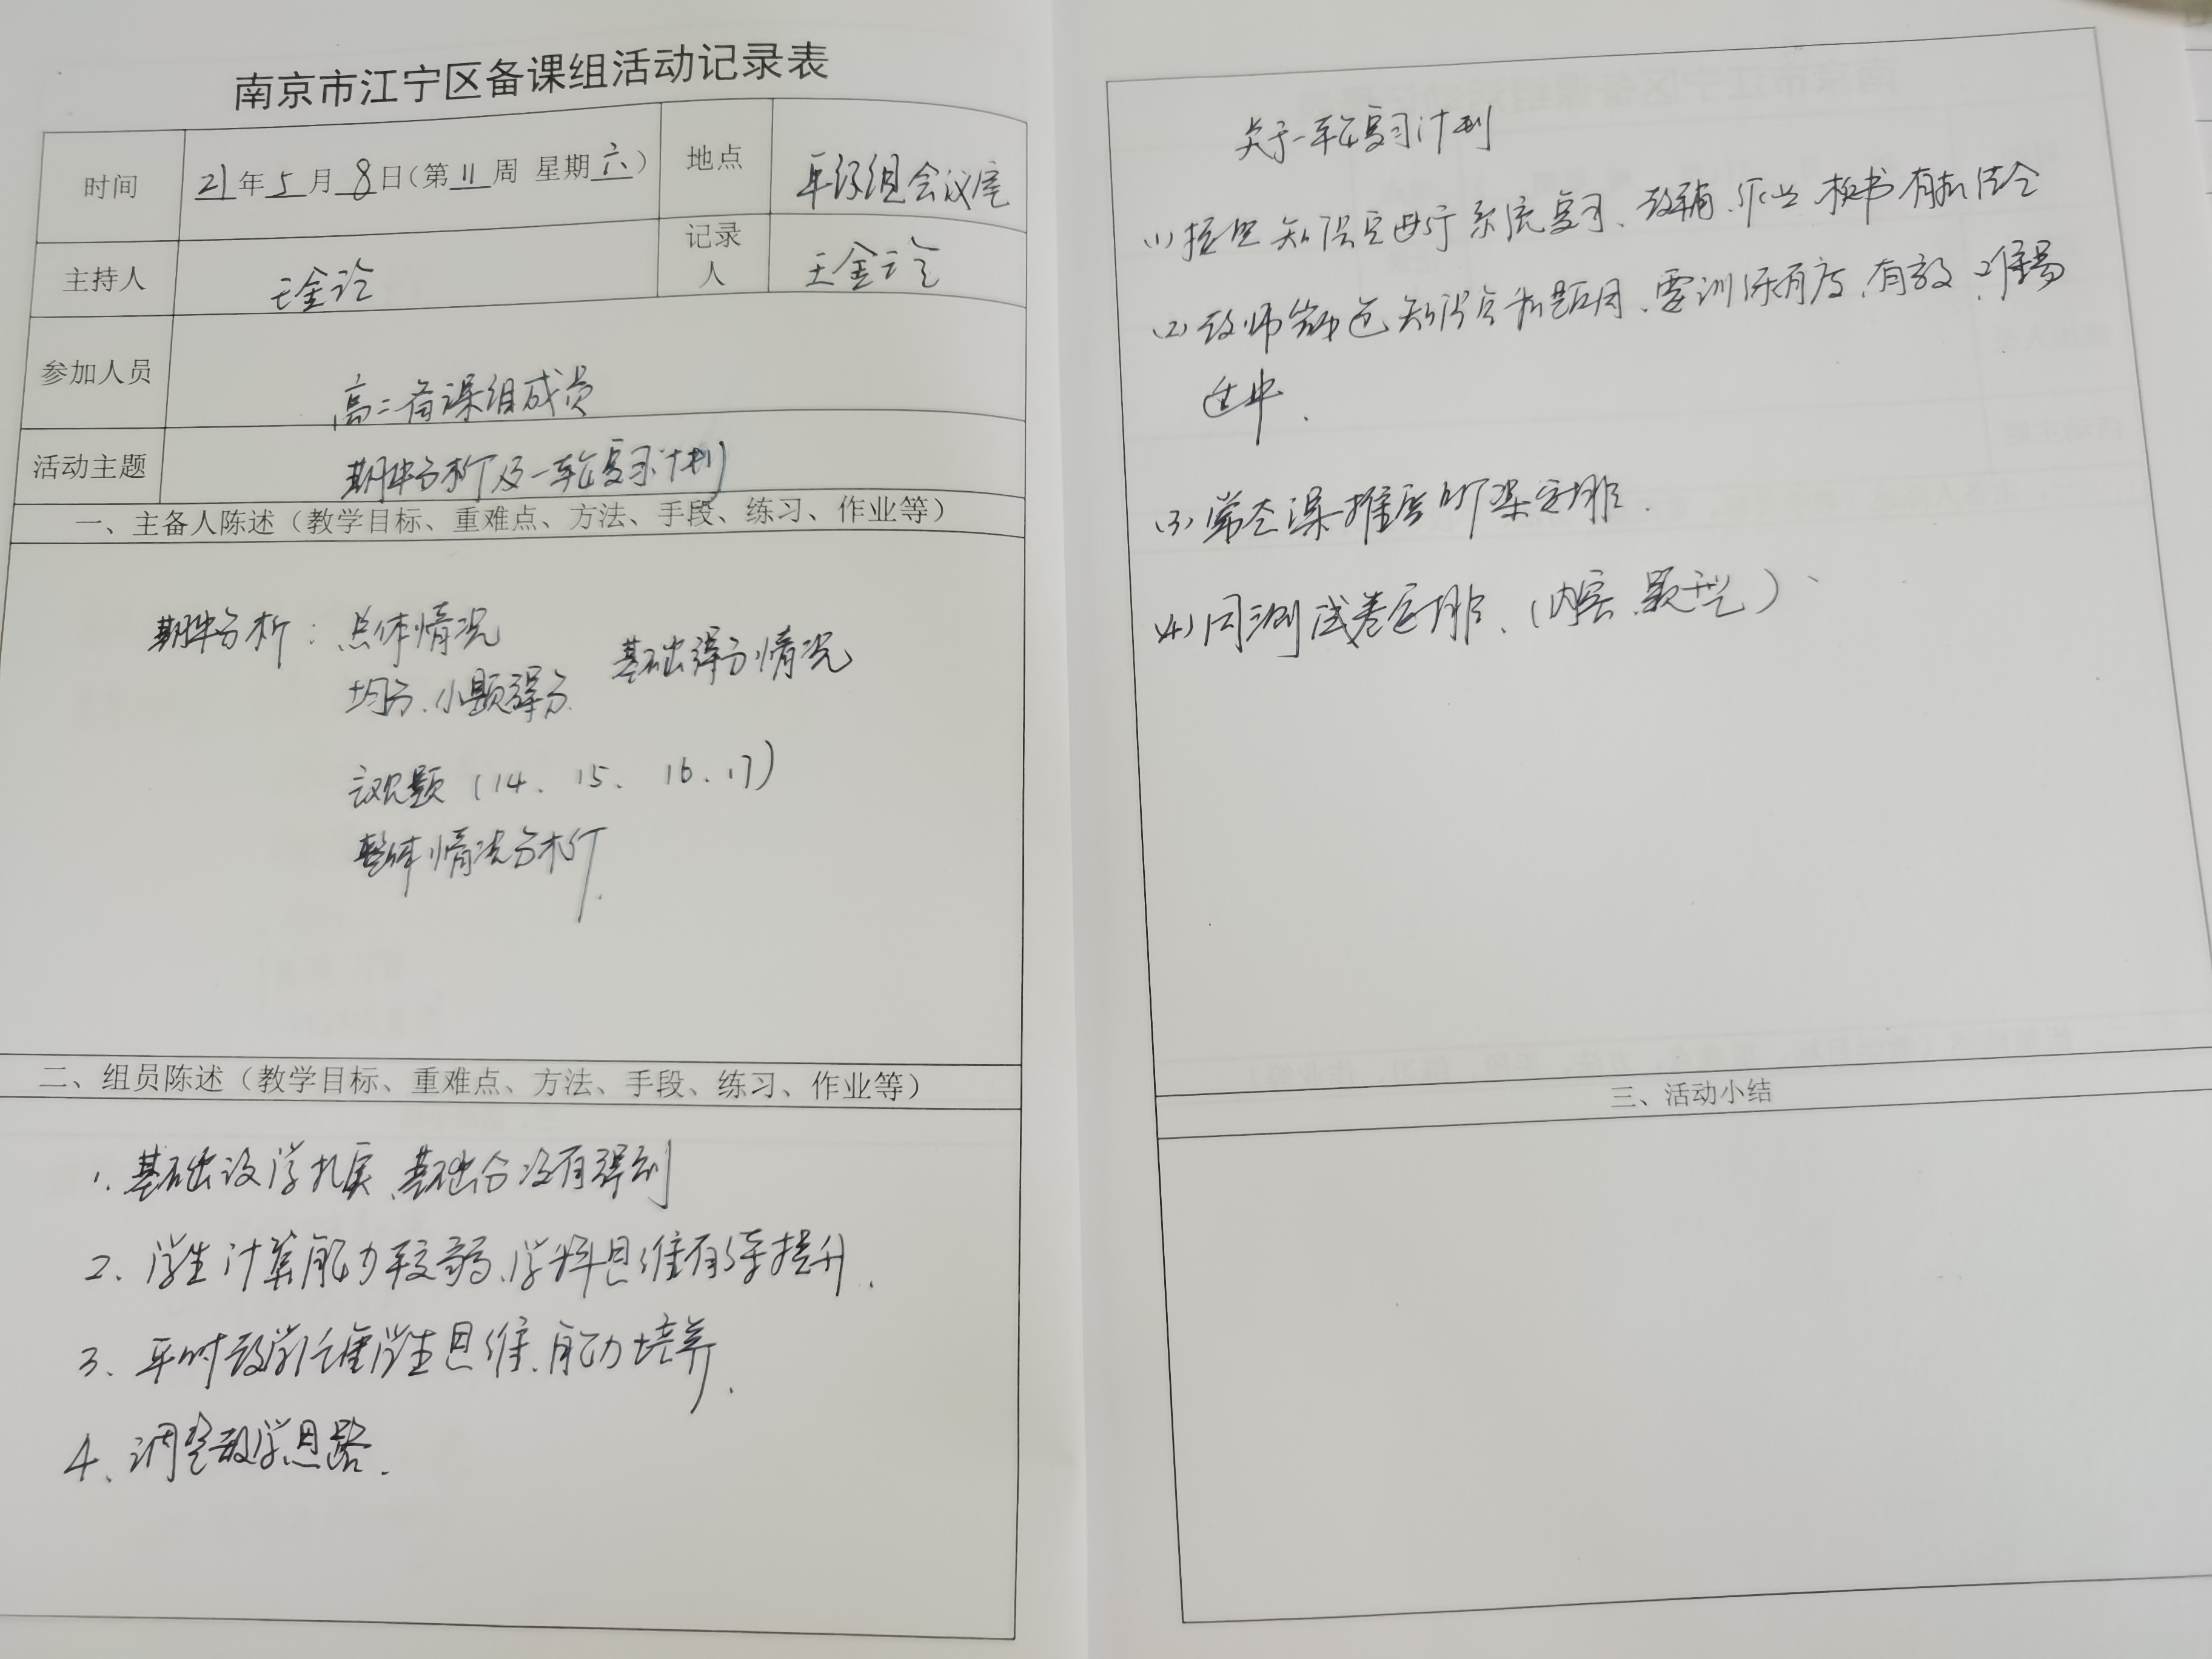 南京市江宁区备课组活动记录表
时间 21年5月8日(第11周 星期六) 地点 年级组会议室
主持人 王金 记录人 王金
参加人员 高二备课组成员
活动主题 期中分析及一轮复习计划
一、主备人陈述（教学目标、重难点、方法、手段、练习、作业等）
期中分析：总体情况
均分、小题得分 基础得分情况
题（14、15、16、17）
整体情况分析
二、组员陈述（教学目标、重难点、方法、手段、练习、作业等）
1、基础没学扎实、基础分没有得到
2、学生计算能力较弱、学科思维有待提升.
3、平时教学注重学生思维、能力培养.
4、调整教学思路.
关于一轮复习计划
(1)按照知识点进行系统复习、教辅、作业 板书有机结合
(2)教师知识点和题、要训练有度、有效、难易
适中.
(3)常态课推磨听课安排.
(4)周测试卷安排、(内容、题型)
三、活动小结